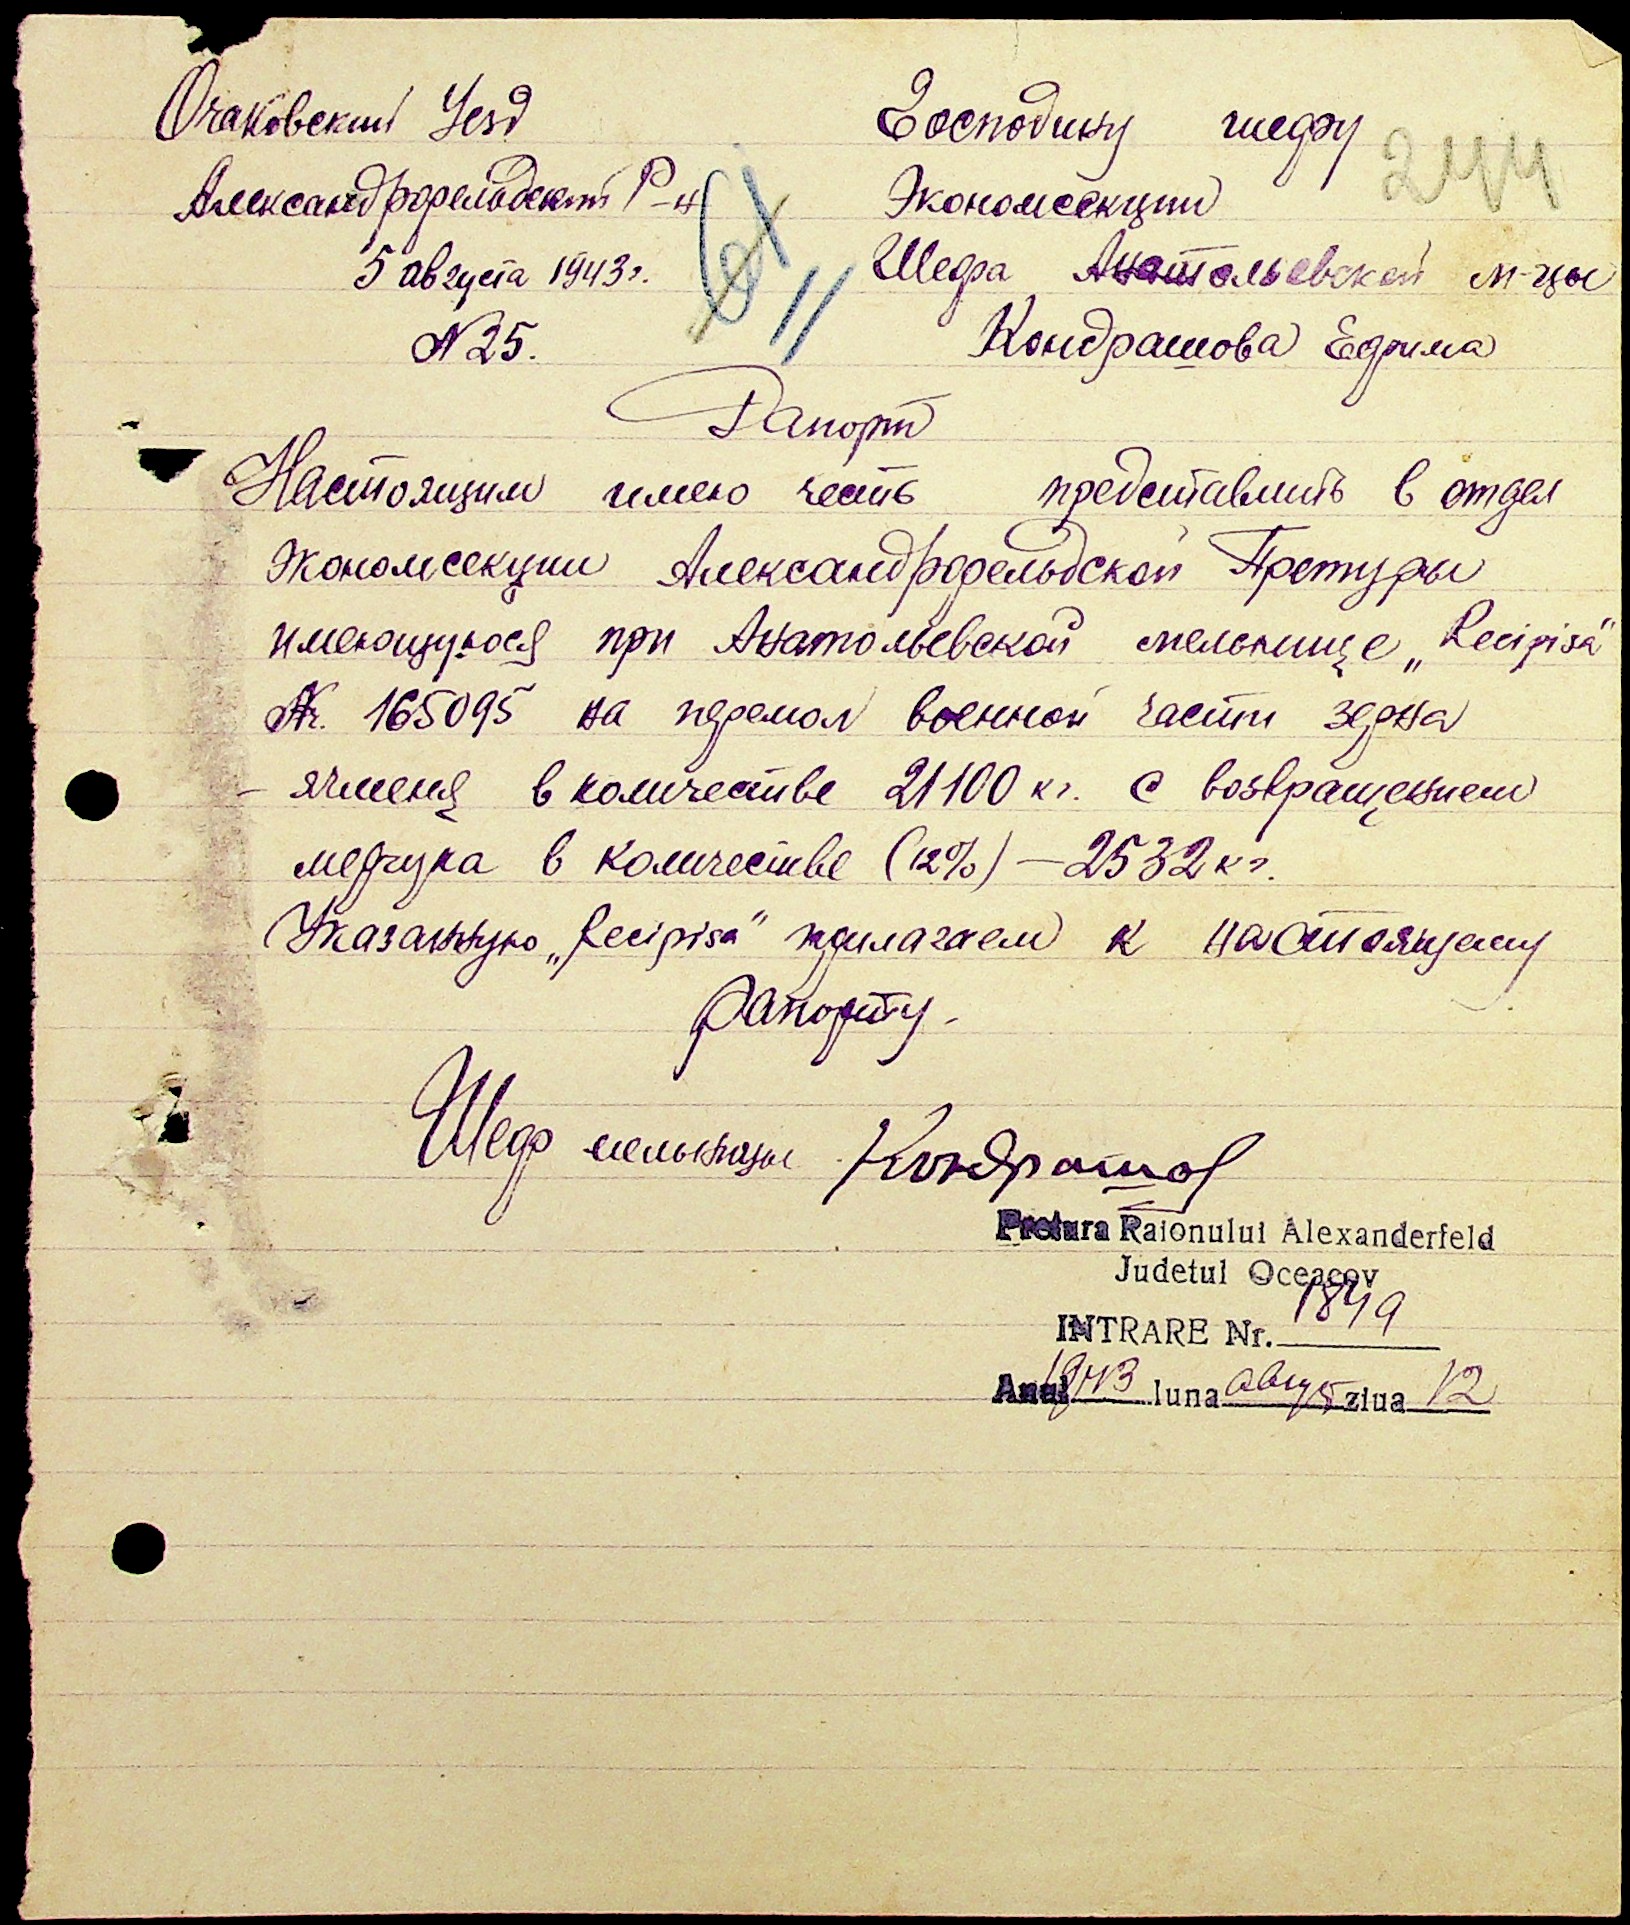 Очаковский Уезд
Александрфельдский Р-н
5 августа 1943 г.
№ 25.
Господину шефу
244
Экономсекции
Шефа Анатольевской м-цы
Кондрашова Ефима
Рапорт
Настоящим имею честь представить в отдел
Экономсекции Александрфельдской Претуры
имеющуюся при Анатольевской мельнице „Recipisa“
Nr. 165095 на перемол военной части зерна
- ячменя в количестве 21100 кг. с возвращением
мерчука в количестве (12%) — 2532 кг.
Указанную „Recipisa“ прилагаем к настоящему
рапорту.
Шеф мельницы Кондрашов
Pretura Raionului Alexanderfeld
Judetul Oceacov
INTRARE Nr. 1849
Anul 1943 luna август ziua 12